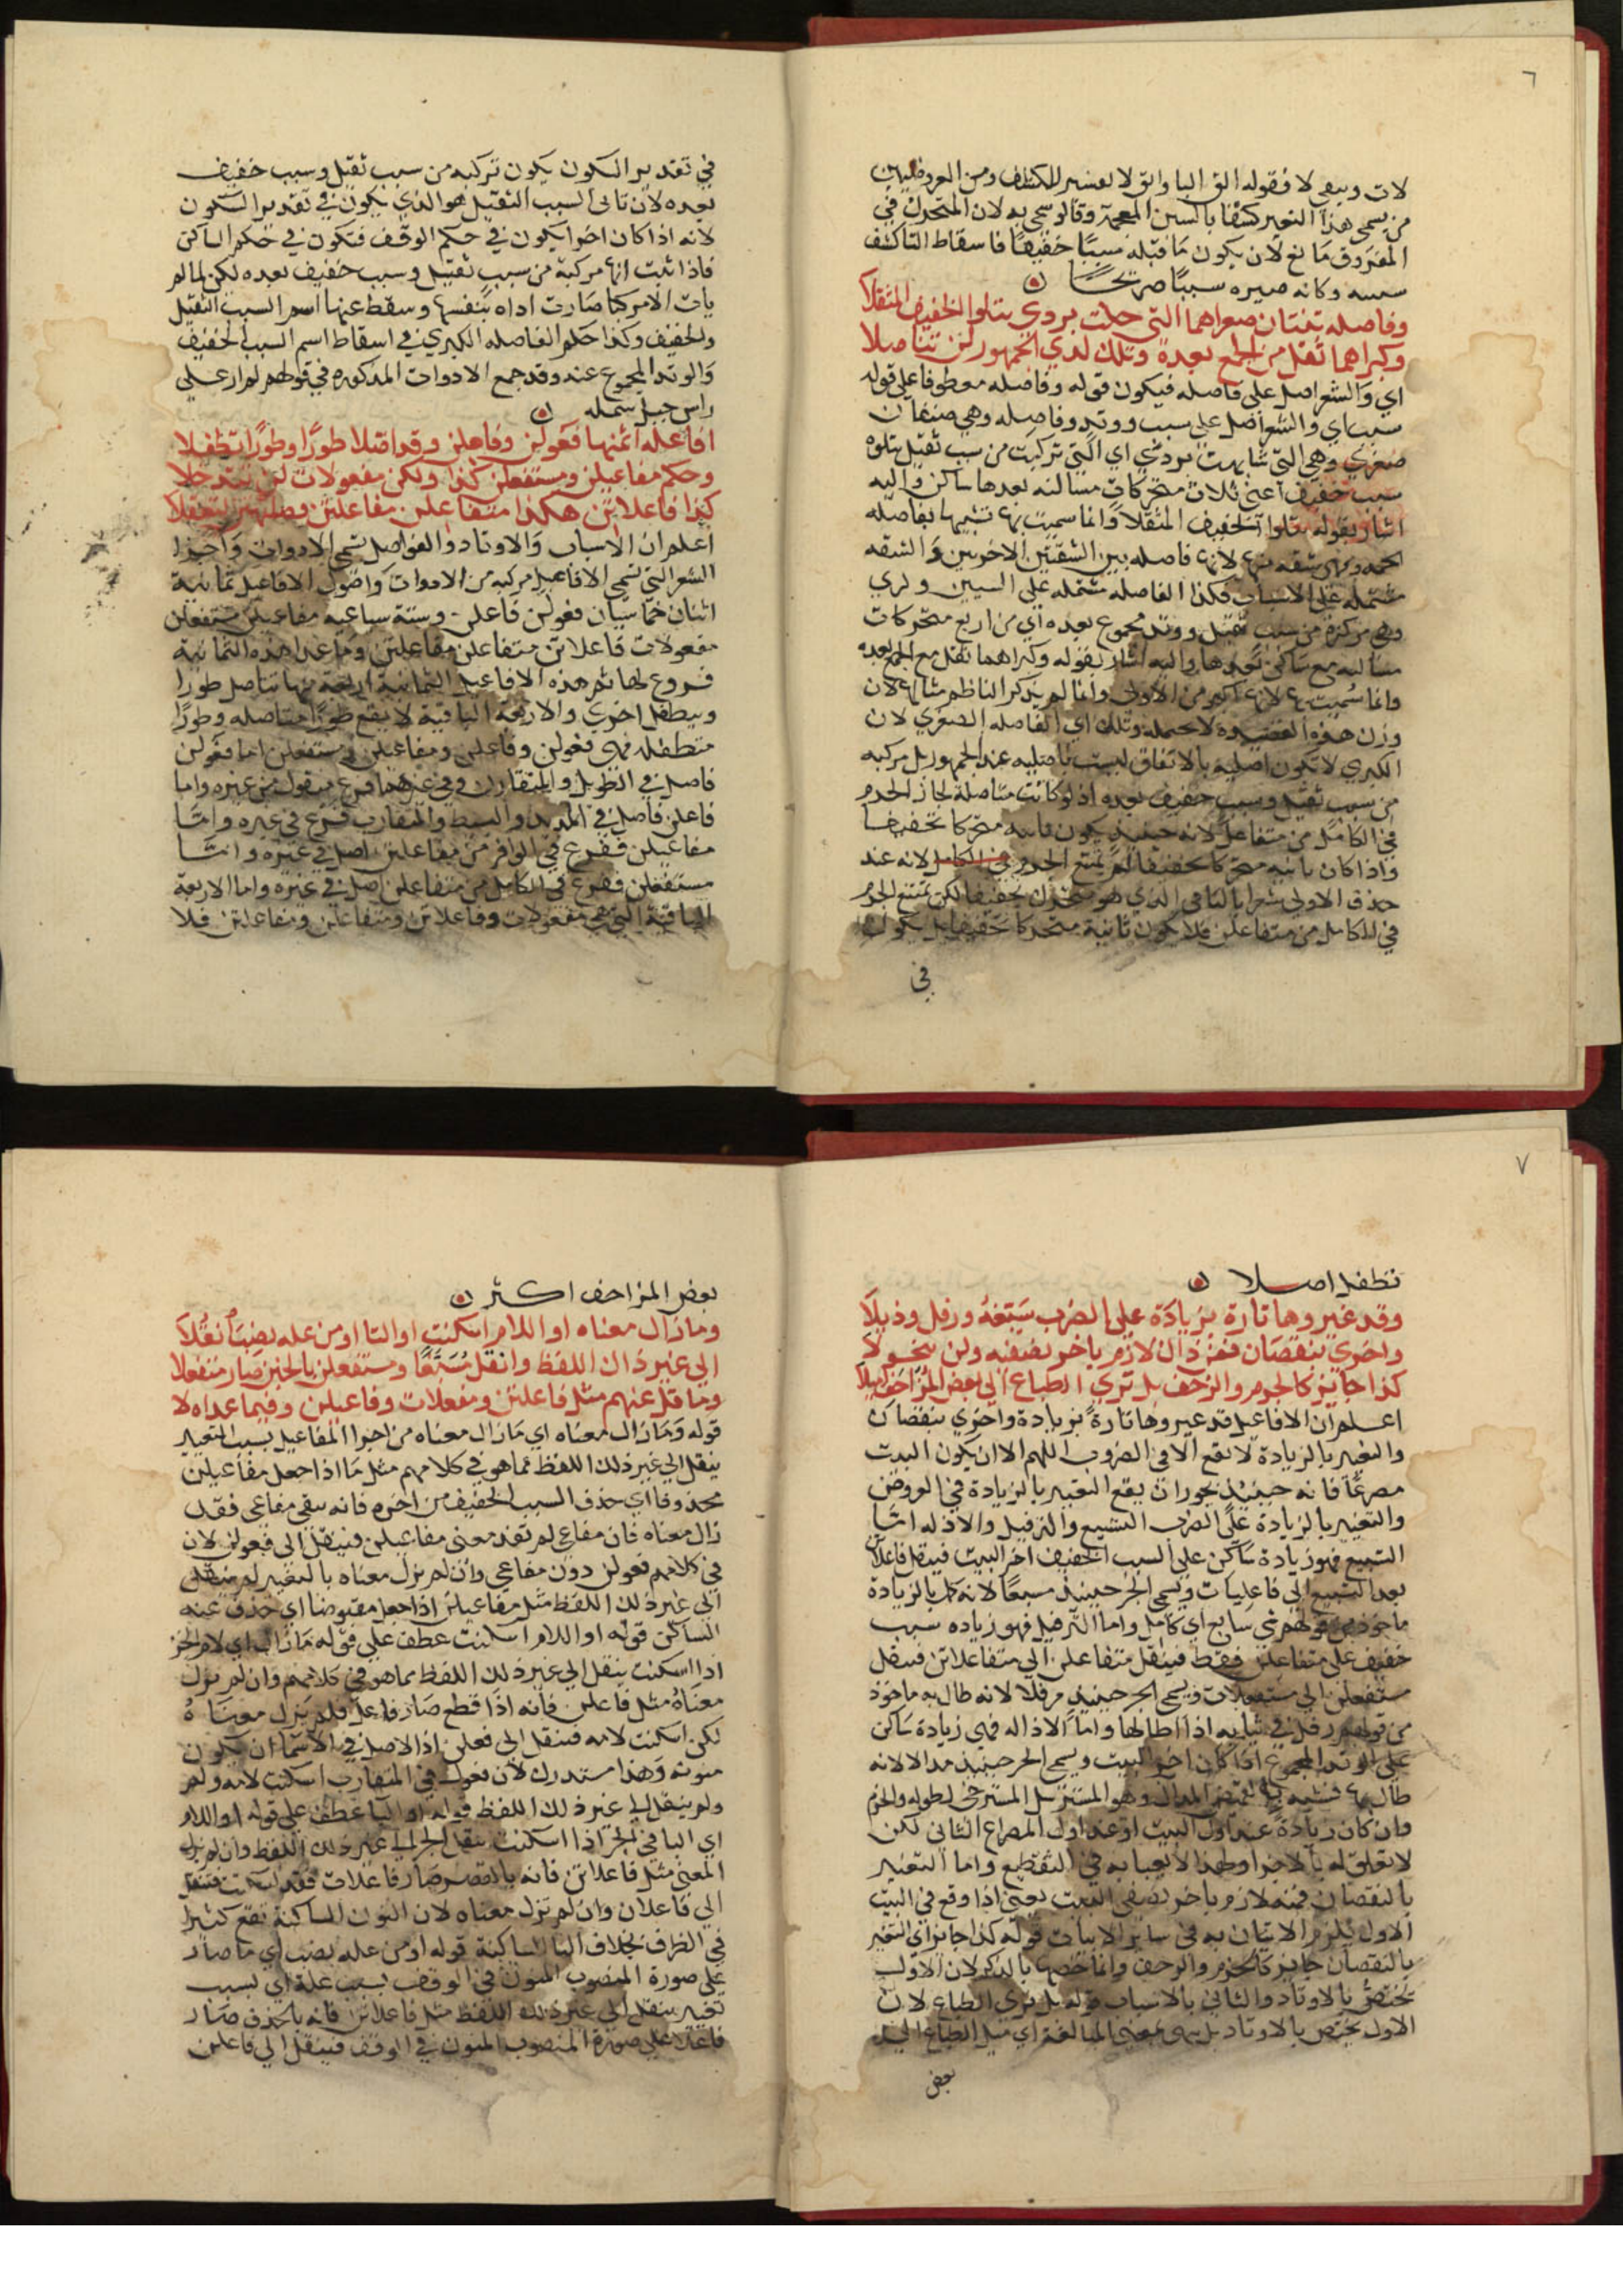 ٦
لات ويبقى لا فقوله الق البا والق لا تفسير للكشف ومن العروضيين
من يسمى هذا التغير كشفا بالسين المعجمة وقالو سمي به لان المتحرك في
المفروق مانع لان يكون ما قبله سببًا خفيفًا فاسقاط التا كشف
سببه وكانه صيره سببًا صريحًا
وفاصله ثنتان صغراهما التي حلت بردي يتلوا الخفيف المثقلا
وكبراهما ثقل من الجمع بعدة وتلك لدي الجمهور لن تتاصلا
اي والشعر اصل على فاصله فيكون قوله وفاصله معطوفا على قوله
سبب اي والشعر اصل على سبب ووتد وفاصله وهي صنفان
صغري وهي التي شابهت بردي اي التي تركبت من سبب ثقيل يتلوه
سبب خفيف اعني ثلاث متحركات مسالنه بعدها ساكن واليه
اشار بقوله يتلوا الخفيف المثقلا وانما سميت بها تشبيها بفاصله
الخيمه وهي شقه منها لانها فاصله بين الشقتين الاخريين والشقه
مشتمله على الاسباب فكذا الفاصله مشتمله على السببين وكبري
وهي مركبة من سبب ثقيل ووتد مجموع بعده اي من اربع متحركات
مساليه مع ساكن بعدها واليه اشار بقوله وكبراهما ثقل مع الجمع بعده
وانما سميت بها لانها اكبر من الاولى وانما لم يذكر الناظم مثالها لان
وزن هذه القصيده لا تحمله وتلك اي الفاصله الصغري لان
الكبري لا تكون اصليه بالاتفاق ليست باصليه عند الجمهور بل مركبه
من سبب ثقيل وسبب خفيف بعده اذ لو كانت متاصله لجاز الخرم
في الكامل من متفاعلن لانه حينيذ يكون ثانيه متحركا تخفيفا
واذا كان ثانيه متحركا تخفيفا لم يمتنع الخرم في الكامل لانه عند
حذف الاولى شعر ابالثاني الذي هو متحرك تخفيفا لكن يمتنع الخرم
في الكامل من متفاعلن فلا يكون ثانية متحركا تخفيفا بل يكون
في
في تقدير السكون يكون تركبه من سبب ثقيل وسبب خفيف
بعده لان ثاني السبب الثقيل هو الذي يكون في تقدير السكون
لانه اذا كان اخرا يكون في حكم الوقف فتكون في حكم الساكن
فاذا ثبت انها مركبة من سبب ثقيل وسبب خفيف بعده لكن لما لم
يات الا مركبا صارت اداه بنفسها وسقط عنها اسم السبب الثقيل
والخفيف وكذا حكم الفاصله الكبري في اسقاط اسم السبب الخفيف
والوتد المجموع عنه وقد جمع الادوات المذكوره في قولهم لم ار على
راس جبل سمكه
افاعله اثمنها فعولن وفاعلن وقد اصلا طورًا وطورًا تطفلا
وحكم مفاعيلن ومستفعلن كذا ولكن مفعولات لن تتدخلا
كذا فاعلاتن هكذا متفاعلن مفاعلتن
اعلم ان الاسباب والاوتاد والفواصل تسمى الادوات واجزا
الشعر التي تسمى الافاعيل مركبه من الادوات واصول الافاعيل ثمانية
اثنان خماسيان فعولن فاعلن وستة سباعيه مفاعيلن مستفعلن
مفعولات فاعلاتن متفاعلن مفاعلتن وما عدا هذه الثمانية
فروع لها ثم هذه الافاعيل الثمانية اربعة منها تتاصل طورا
ويتطفل اخري والاربعة الباقية لا يقع طورًا متاصله وطورًا
متطفله فهي فعولن وفاعلن ومفاعيلن ومستفعلن اما فعولن
فاصل في الطويل والمتقارب وفي غيرهما فرع منقول من غيره واما
فاعلن فاصل في المديد والبسيط والمتقارب فرع في غيره واما
مفاعيلن ففرع في الوافر من مفاعلتن اصل في غيره واما
مستفعلن ففرع في الكامل من متفاعلن اصل في غيره واما الاربعة
الباقية التي هي مفعولات وفاعلاتن ومتفاعلن ومفاعلتن فلا
٧
تطفل اصلا
وقد غيروها تارة بزيادة على الضرب سبّغهُ ورفل وذيلا
واخري بنقصان فمن ذان لازم باخر نصفيه ولن يتحولا
كذا جايز كالخرم والزحف بل تري الطباع الى بعض المزاحف اميلا
اعلم ان الافاعيل قد غيروها تارة بزيادة واخري بنقصان
والتغير بالزيادة لا تقع الا في الضروب اللهم الا ان يكون البيت
مصرعًا فانه حينيذ يجوز ان يقع التغيير بالزيادة في العروض
والتغير بالزيادة على الضرب التسبيغ والترفيل والاذاله اما
التسبيغ فهو زيادة ساكن على السبب الخفيف اخر البيت فينقل فاعلاتن
بعد التسبيغ الى فاعليات ويسمى الجز حينيذ مسبغا لانه كمل بالزيادة
ماخوذ من قولهم شي سابغ اي كامل واما الترفيل فهو زياده سبب
خفيف على متفاعلن فقط فينقل متفاعلن الى متفاعلاتن فينقل
مستفعلن الى مستفعلات ويسمى الجز حينيذ مرفلا لانه طال به ماخوذ
من قولهم رفل في ثيابه اذا اطالها واما الاذاله فهي زيادة ساكن
على الوتد المجموع اذا كان اخر البيت ويسمى الجز حينيذ مذالا لانه
طال بها فشبه بالقميص المذال وهو المسترسل المسترخى لطوله والخزم
وان كان زيادة عند اول البيت او عند اول المصراع الثاني لكن
لا تعلق له بالاجزا ولهذا لا يعبا به في التقطيع واما التغير
بالنقصان فمنه لازم باخر نصفى البيت يعني اذا وقع في البيت
الاول يلزم الاتيان به في ساير الابيات قوله كذا جايز اي التغير
بالنقصان جايز كالخرم والزحف وانما خصها بالذكر لان الاول
تختص بالاوتاد والثاني بالاسباب قوله بل تري الطباع لان
الاول تختص بالاوتاد بل هي بمعنى المبالغة اي ميل الطباع الى
بعض
بعض المزاحف اكثر
وما زال معناه او اللام اسكنت او التا او من عله
الى غير ذان اللفظ وانقل مُسَبَّغًا ومستفعلن بالخبن صار متفعلا
وما قل عنهم مثل فاعلتن ومفعلات وفاعيلن وفيما عداه لا
قوله وما زال معناه اي ما زال معناه من اجزا المفاعيل بسبب التغير
ينقل الى غير ذلك اللفظ مما هو في كلامهم مثل ما اذا جعل مفاعيلن
محذوفا اي حذف السبب الخفيف من اخره فانه يبقى مفاعي فقد
زال معناه فان مفاع لم تفد معنى مفاعيلن فينقل الى فعولن لان
في كلامهم فعولن دون مفاعي وان لم يزل معناه بالتغير لم ينقل
الى غير ذلك اللفظ مثل مفاعيلن اذا جعل مقبوضا اي حذف عنه
الساكن قوله او اللام اسكنت عطف على قوله ما زال اي لام الجز
اذا اسكنت ينقل الى غير ذلك اللفظ مما هو في كلامهم وان لم يزل
معناهُ مثل فاعلن فانه اذا قطع صار فاعل فلم يزل معناهُ
لكن اسكنت لامه فينقل الى فعلن اذ الاصل في الاسما ان يكون
منونه وهذا مستدرك لان فعول في المتقارب اسكنت لامه ولم
ولم ينقل الى غير ذلك اللفظ قوله او التا عطف على قوله او اللام
اي التا في الجز اذا اسكنت ينقل الجز الى غير ذلك اللفظ وان لم يزل
المعنى مثل فاعلاتن فانه بالقصر صار فاعلات فقد اسكنت فتنقل
الى فاعلان وان لم تزل معناه لان النون الساكنة تقع كثيرا
في الظراف بخلاف التا الساكنة قوله او من عله نصب اي ما صار
على صورة المنصوب المنون في الوقف بسبب علة اي بسبب
تغير ينقل الى غير ذلك اللفظ مثل فاعلاتن فانه بالحذف صار
فاعلا على صورة المنصوب المنون في الوقف فينقل الى فاعلن